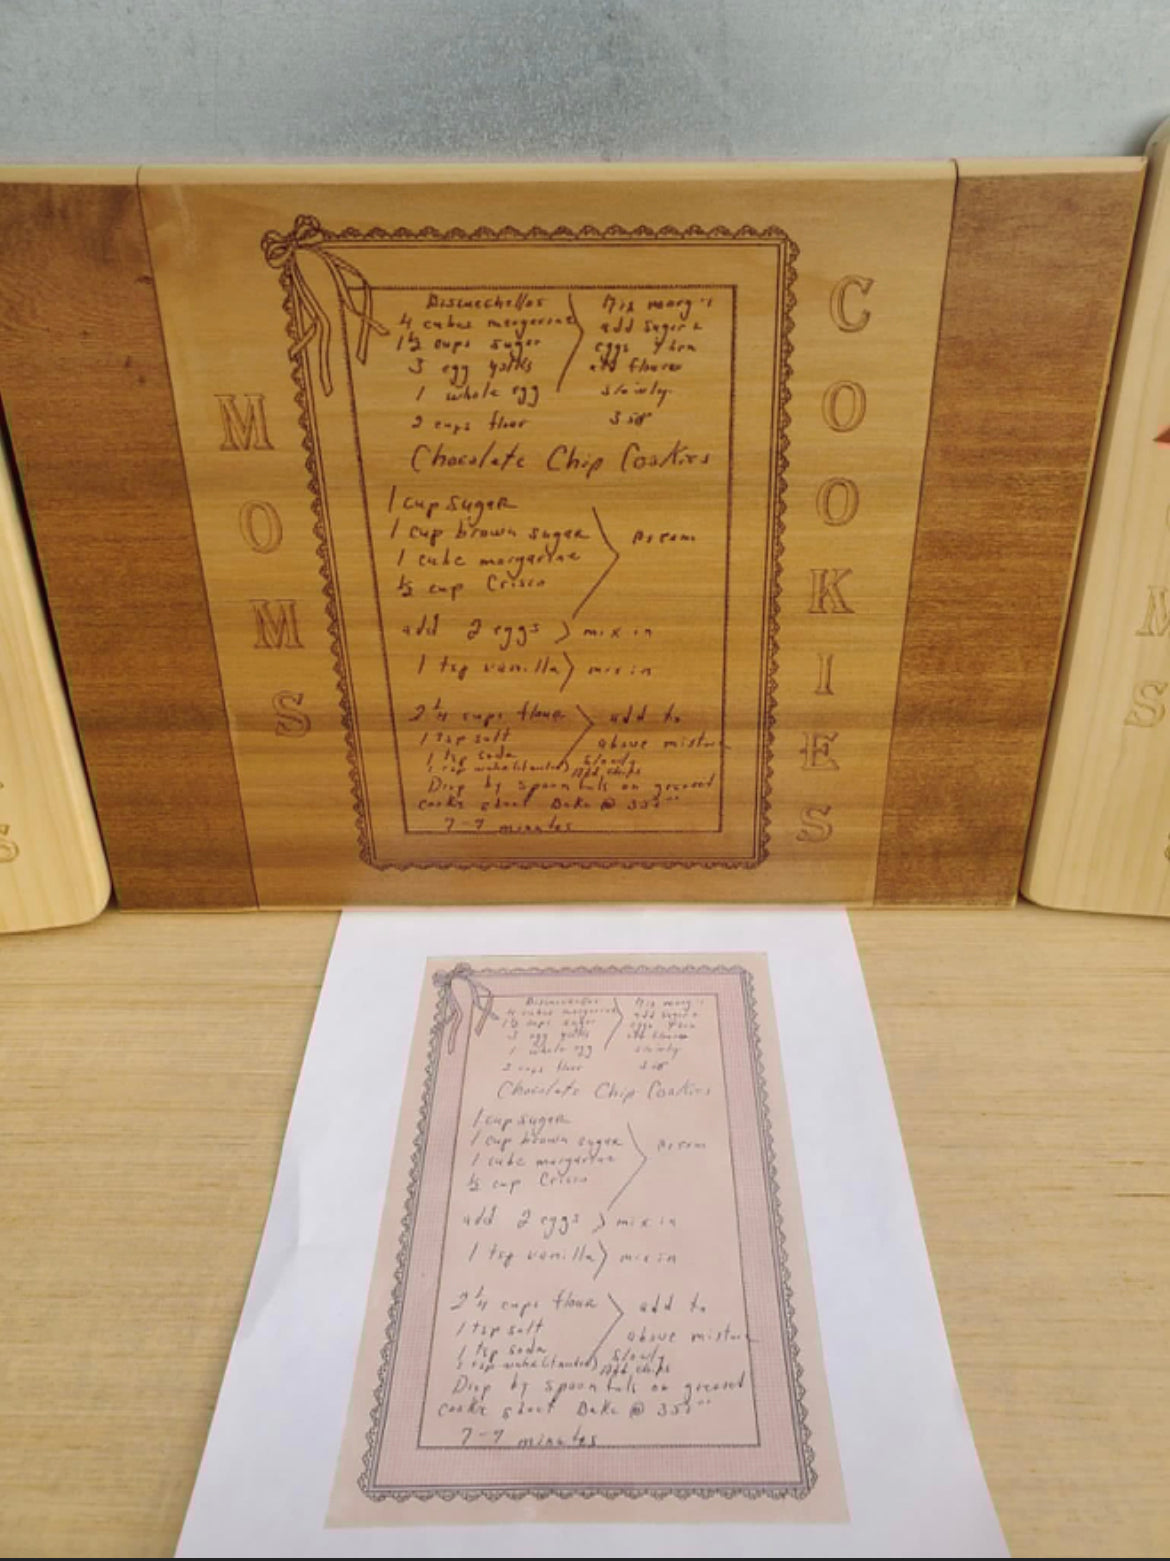 MOMS
COOKIES
4 cubes margarine
1 1/2 cups sugar
3 egg yolks
1 whole egg
2 cups flour
Mix marg
add sugar &
eggs then
add flour
slowly
350
Chocolate Chip Cookies
1 cup sugar
1 cup brown sugar
1 cube margarine
1/2 cup Crisco
add 2 eggs } mix in
1 tsp vanilla } mix in
2 1/4 cups flour
1 tsp salt
1 tsp soda
1 cup
add to
above mixture
slowly
Add chips
Drop by spoon fuls on greased
cookie sheet Bake @ 350°
minutes
4 cubes margarine
1 1/2 cups sugar
3 egg yolks
1 whole egg
2 cups flour
Mix marg
add sugar &
eggs then
add flour
slowly
350
Chocolate Chip Cookies
1 cup sugar
1 cup brown sugar
1 cube margarine
1/2 cup Crisco
add 2 eggs } mix in
1 tsp vanilla } mix in
2 1/4 cups flour
1 tsp salt
1 tsp soda
1 cup
add to
above mixture
slowly
Add chips
Drop by spoon fuls on greased
cookie sheet Bake @ 350°
minutes
M
S
S